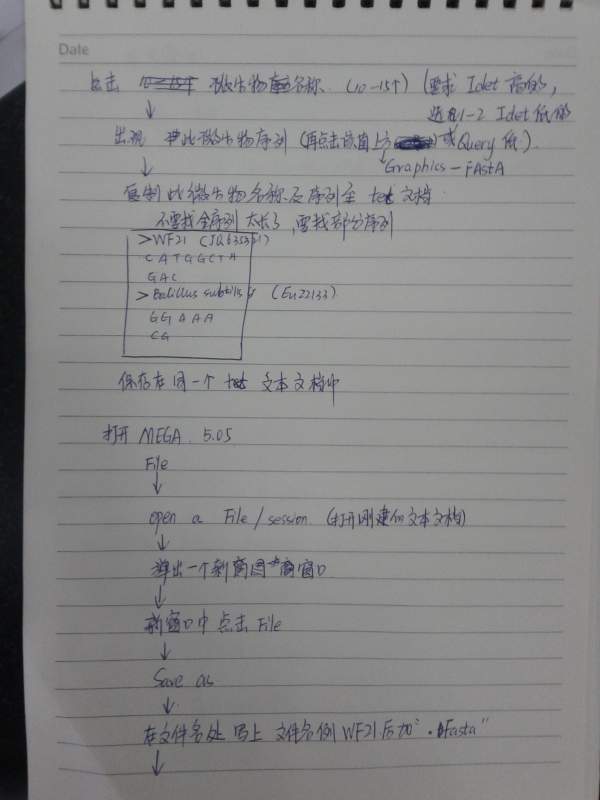 Date
点击 微生物名称. (10-15个) (要求 Idet 高的,
选用1-2 Idet 低的
出现 此微生物序列 (再点击该窗上方 ) 或Query 低).
Graphics - FAStA
复制此微生物名称及序列至 text 文档
不要找全序列 太长了, 要找部分序列
>WF21 (JQ635351)
CATGGCTA
GAC
>Bacillus subtilis (Eu22133)
GGAAA
CG
保存在同一个 text 文本文档中
打开 MEGA 5.05
File
open a File/session (打开刚建的文本文档)
弹出一个新窗口
新窗口中点击 File
Save as
在文件名处 写上 文件名例 WF21后加“.fasta”